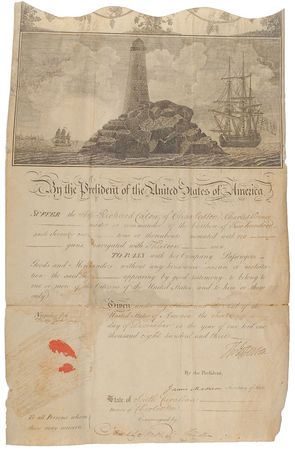 By the President of the United States of America
SUFFER the Ship Richard Caton of Charleston Charles
master or commander of the burthen of two hundred
and seventy tons or thereabouts mounted with no
guns navigated with Thirteen men
TO PASS with her Company Passengers
Goods and Merchandize without any hindrance seizure or molesta-
tion the said Ship appearing by good testimony to belong to
one or more of the Citizens of the United States and to him or them
only
Given
United States of America the
day of December in the year of our Lord one
thousand eight hundred and three
Th Jefferson
By the President,
James Madison Secretary of State
State of South Carolina
District of Charleston
Countersigned by
To all Persons whom
these may concern